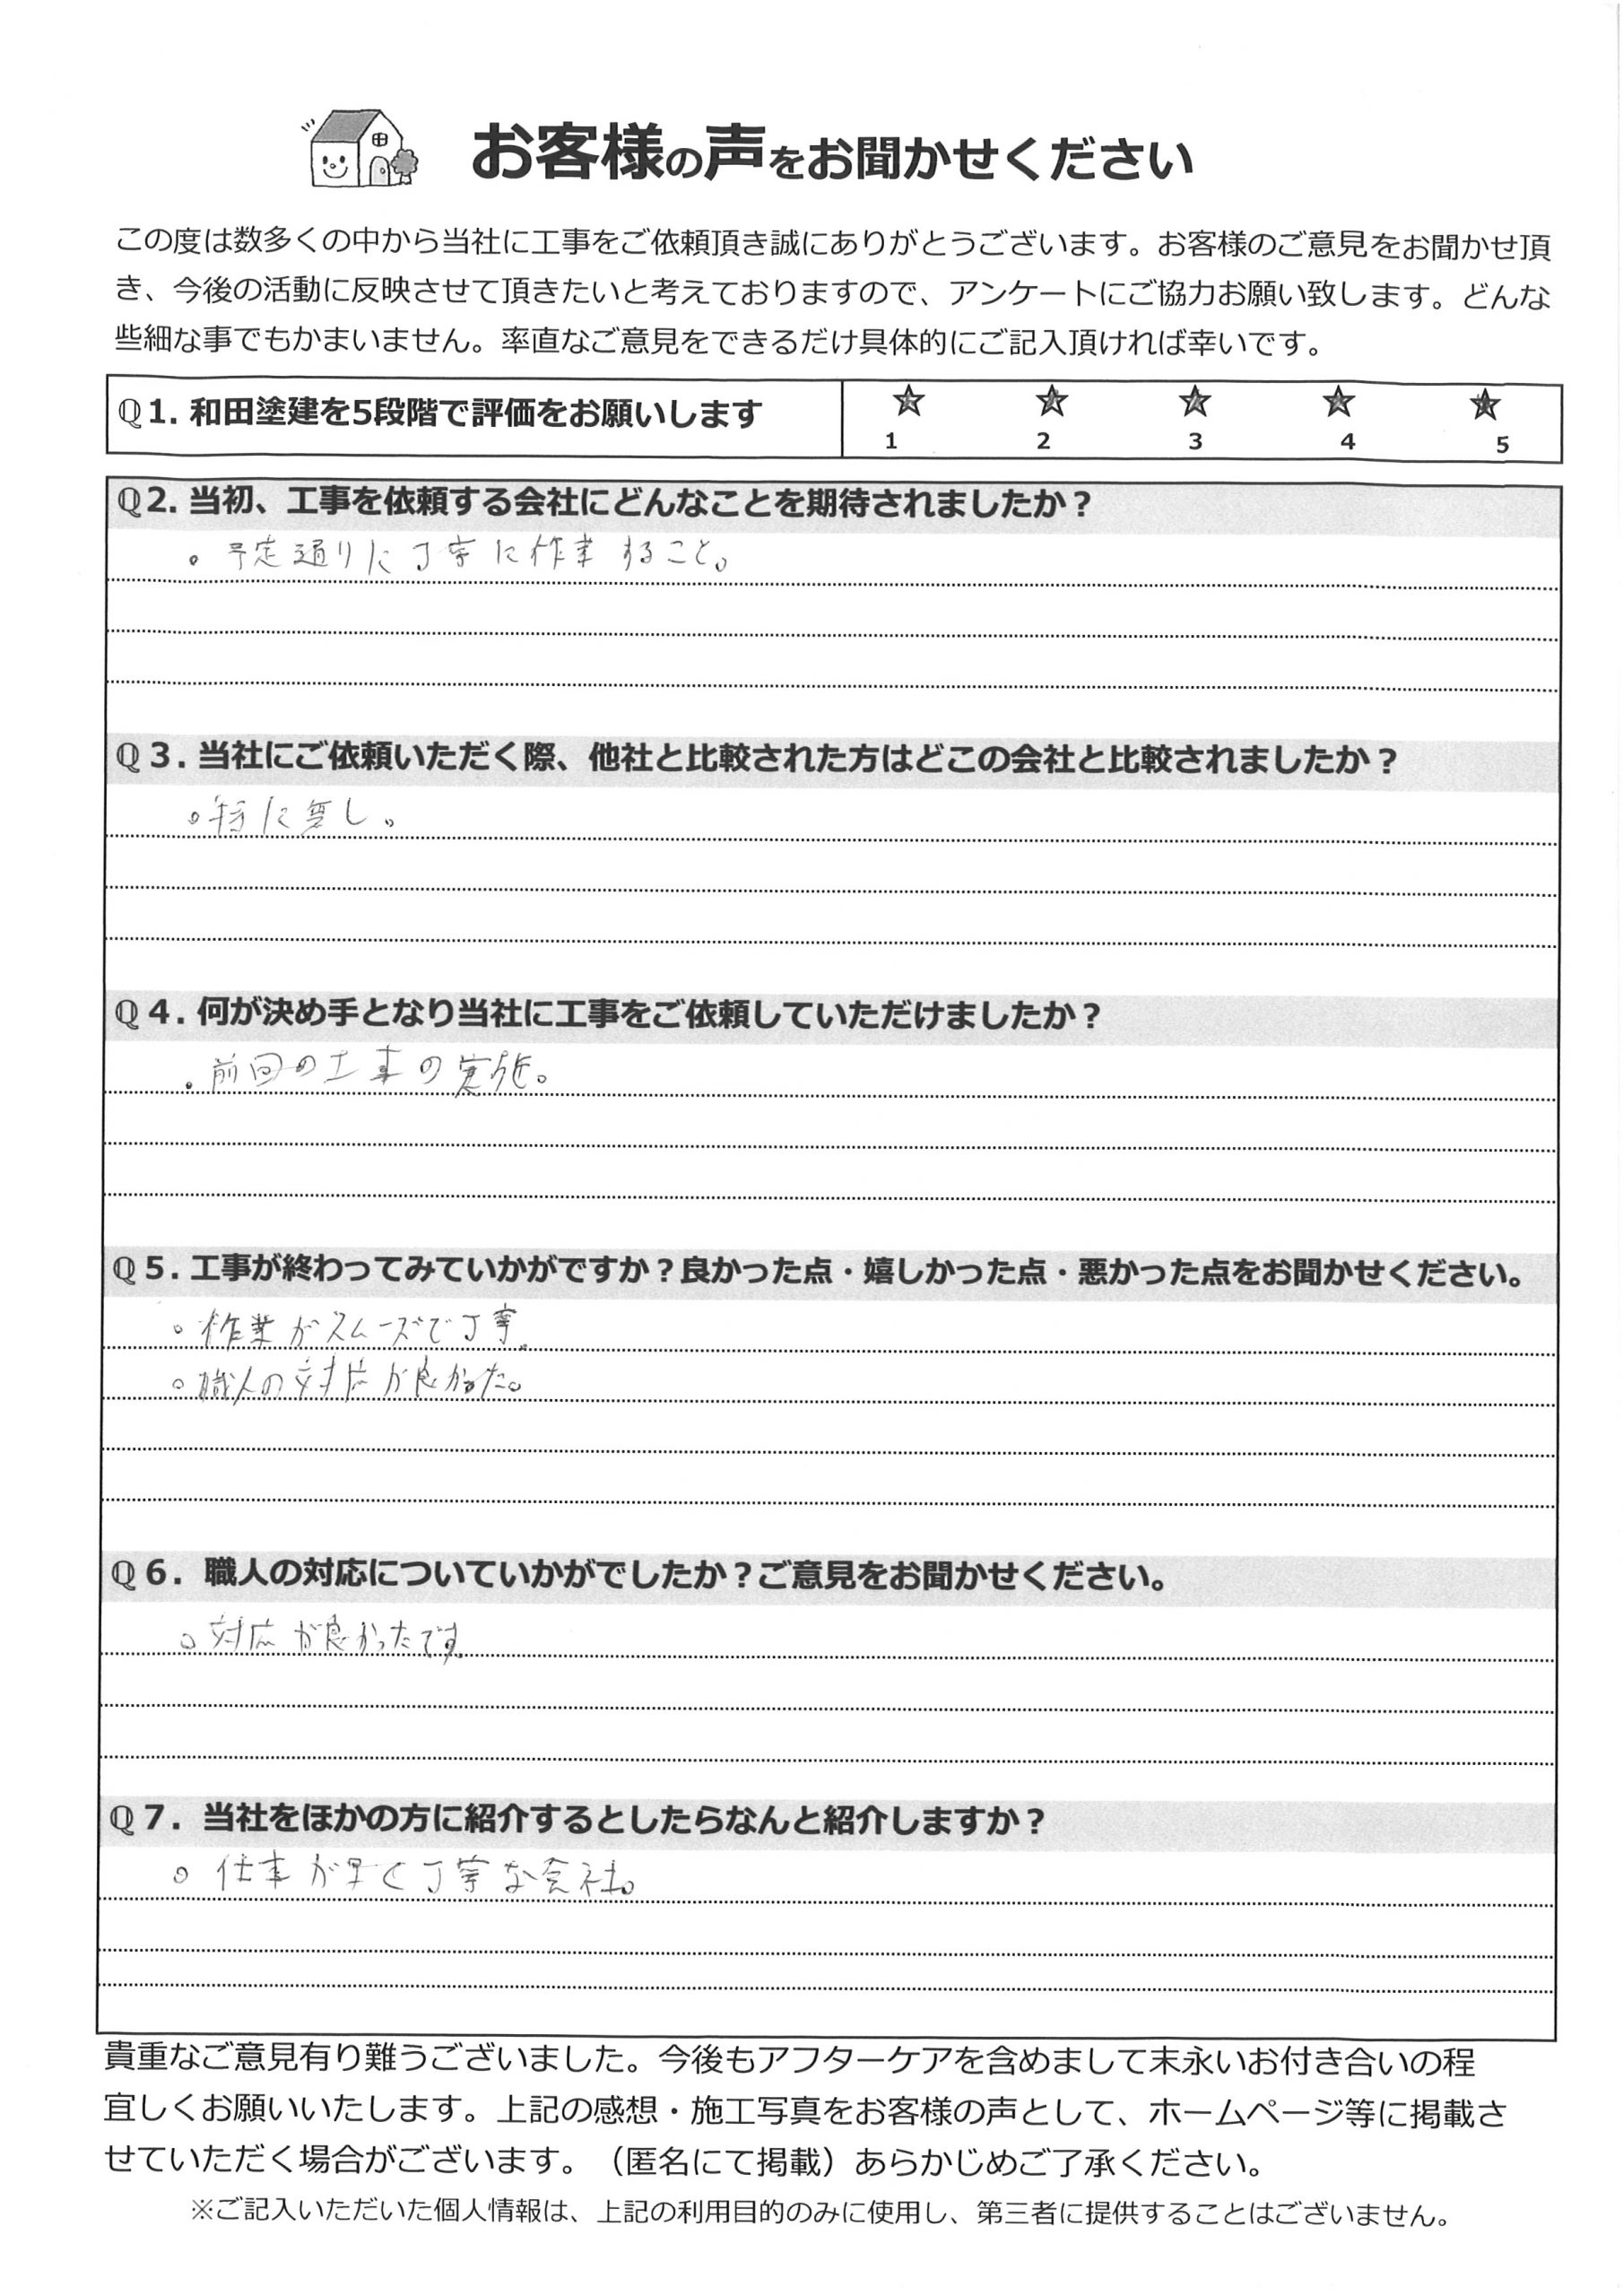 お客様の声をお聞かせください
この度は数多くの中から当社に工事をご依頼頂き誠にありがとうございます。お客様のご意見をお聞かせ頂
き、今後の活動に反映させて頂きたいと考えておりますので、アンケートにご協力お願い致します。どんな
些細な事でもかまいません。率直なご意見をできるだけ具体的にご記入頂ければ幸いです。
Q1. 和田塗建を5段階で評価をお願いします
☆ ☆ ☆ ☆ ★
1 2 3 4 5
Q2. 当初、工事を依頼する会社にどんなことを期待されましたか？
。予定通りに丁寧に作業すること。
Q３. 当社にご依頼いただく際、他社と比較された方はどこの会社と比較されましたか？
。特に無し。
Q４. 何が決め手となり当社に工事をご依頼していただけましたか？
. 前回の工事の実施。
Q５. 工事が終わってみていかがですか？良かった点・嬉しかった点・悪かった点をお聞かせください。
。作業がスムーズで丁寧。
。職人の対応が良かった。
Q６. 職人の対応についていかがでしたか？ご意見をお聞かせください。
。対応が良かったです。
Q７. 当社をほかの方に紹介するとしたらなんと紹介しますか？
。仕事が早く丁寧な会社。
貴重なご意見有り難うございました。今後もアフターケアを含めまして末永いお付き合いの程
宜しくお願いいたします。上記の感想・施工写真をお客様の声として、ホームページ等に掲載さ
せていただく場合がございます。（匿名にて掲載）あらかじめご了承ください。
※ご記入いただいた個人情報は、上記の利用目的のみに使用し、第三者に提供することはございません。